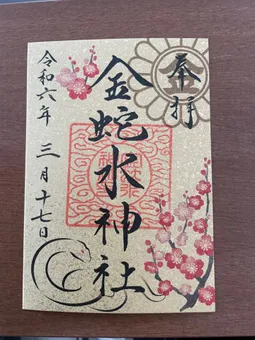 奉拝
金蛇水神社
令和六年 三月十七日